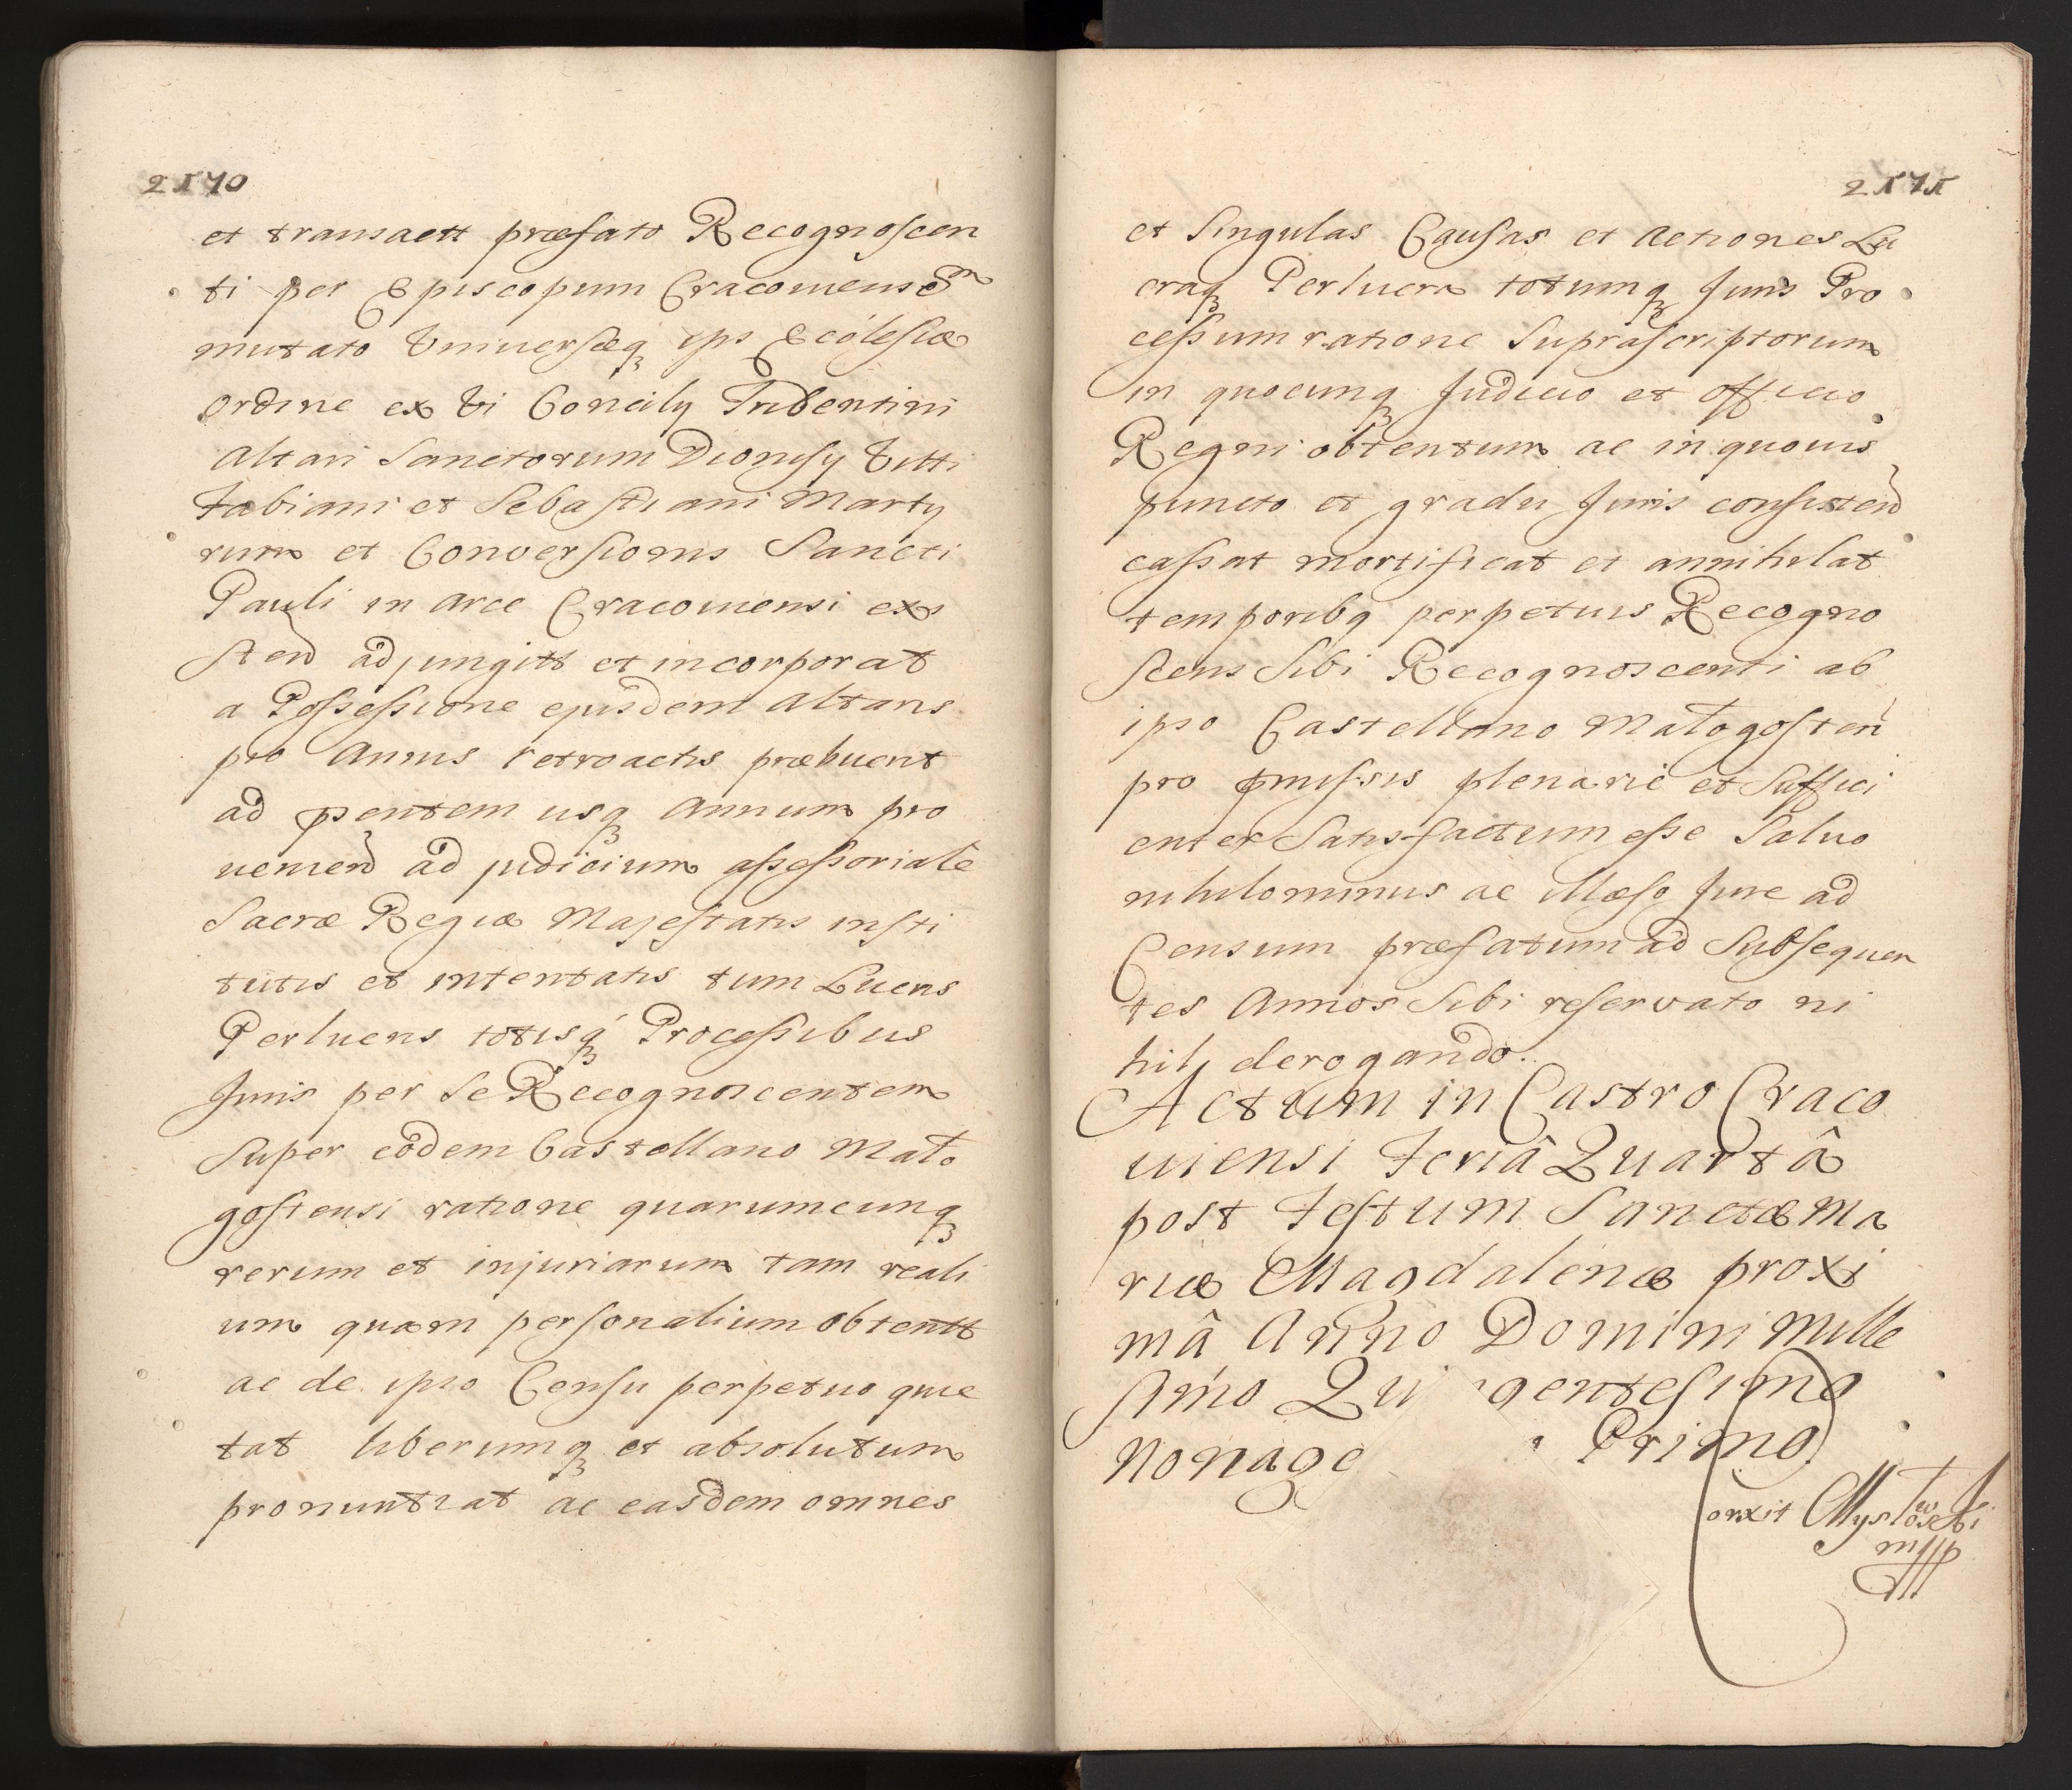 2170
et transactt præfato Recognoscen
ti per Episcopum Cracoviensem
mutato Universæq ips Ecclesiæ
Ordine ex Vi Concily Tridentini
Altari Sanctorum Dionisy Vitti
Fabiani et Sebastiani Marty
rum et Conversionis Sancti
Pauli in Arce Cracoviensi exs
sten adjungitt et incorporat
a Possessione ejusdem Altaris
pro Annis retroactis præbuent
ad psentem usq Annum pro
venien ad judicium assessoriale
Sacræ Regiæ Majestatis insti
tutis et intentatis tum Lucris
Perlucris totisq Processibus
Juris per se Recognoscentem
super eodem Castellano Mało
gostensi ratione quarumcunq
rerum et injuriarum tam reali
um quam personalium obtentt
ac de ipso Censu perpetuo quie
tat liberumq et absolutum
pronuntiat ac easdem omnes
2171
et singulas Causas et Actiones Lu
craq Perlucra totumq Juris Pro
cessum ratione suprascriptorum
in quocunq Judicio et officio
Regni obtentum ac in quovis
puncto et gradu Juris consisten
cassat mortificat et annihilat
temporibq perpetuis Recogno
scens sibi Recognoscenti ab
ipso Castellano Małogosten
pro pmissis plenarie et suffici
enter satisfactum esse Salvo
nihilominus ac illæso Jure ad
Censum præfatum ad subsequen
tes Annos sibi reservato ni
hil derogando.
Actum in Castro Craco
viensi Feriâ Quartâ
post Festum Sanctæ Ma
riæ Magdalenæ proxi
mâ Anno Domini Mille
simo Qui gentesimo
Nonage Primo
orxit
mpp